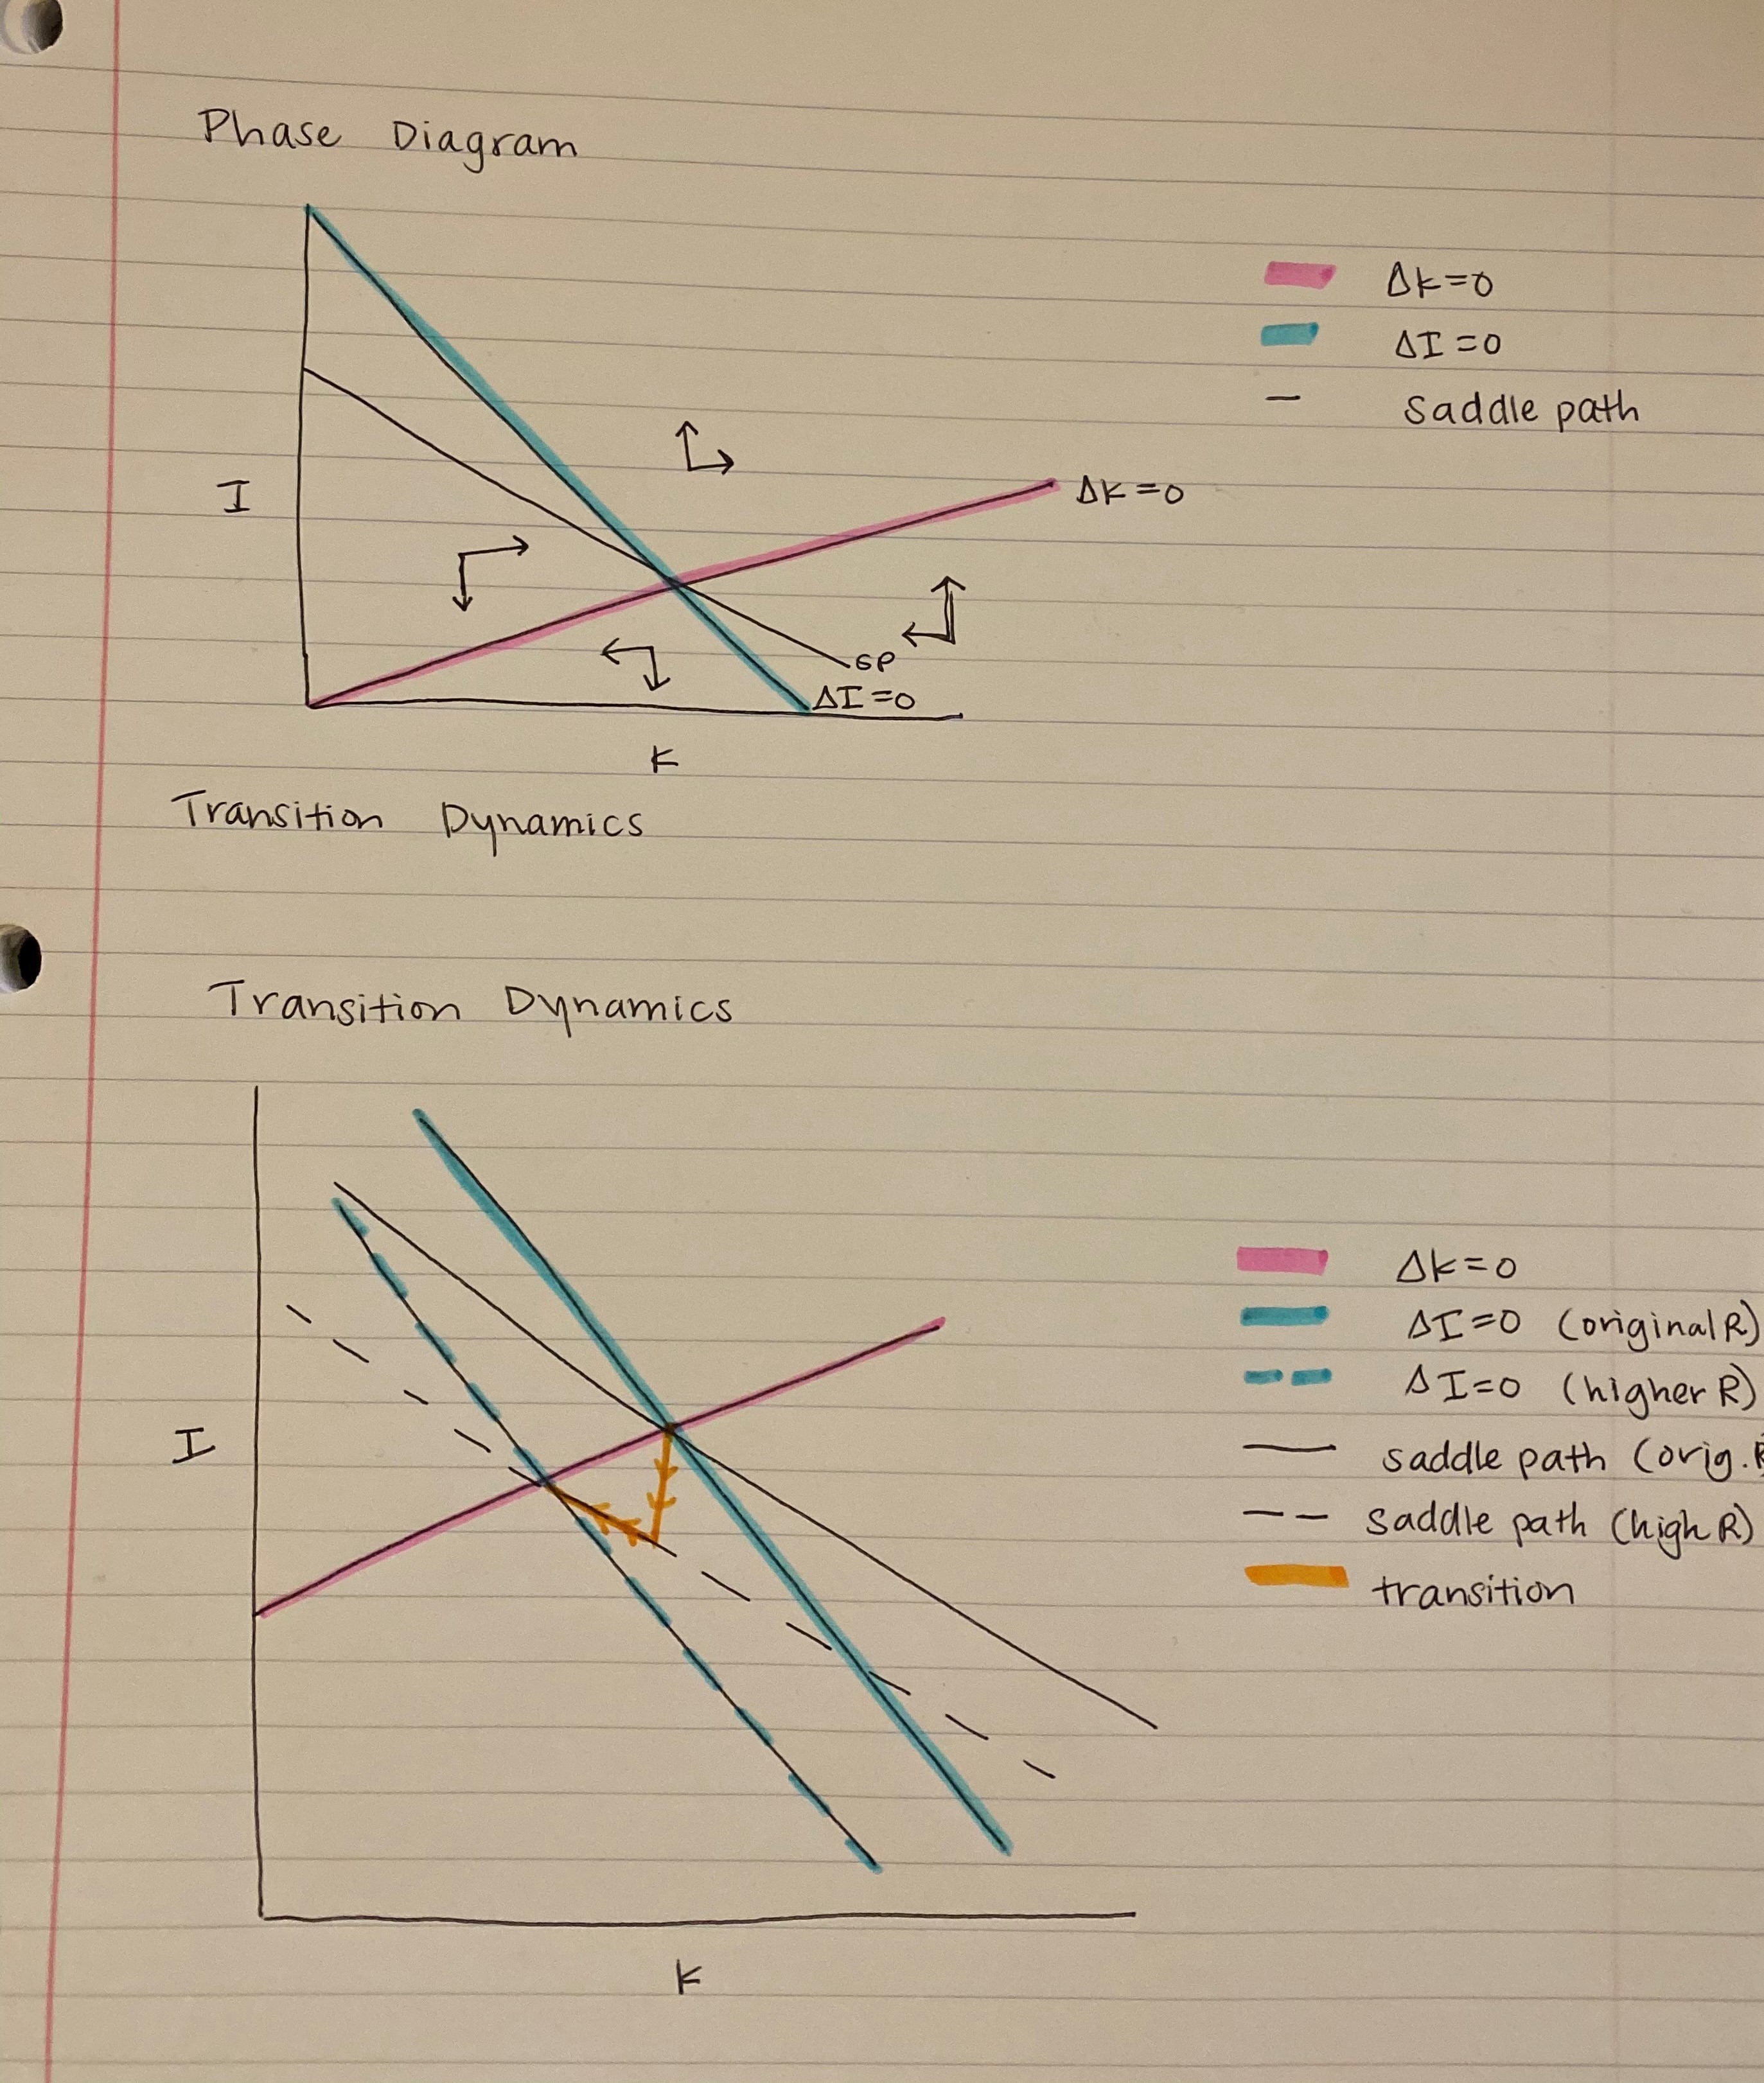 Phase Diagram
Δk=0
ΔI=0
saddle path
I
Δk=0
SP
ΔI=0
K
Transition Dynamics
Transition Dynamics
Δk=0
ΔI=0 (original R)
ΔI=0 (higher R)
I
saddle path (orig. R
saddle path (high R)
transition
K